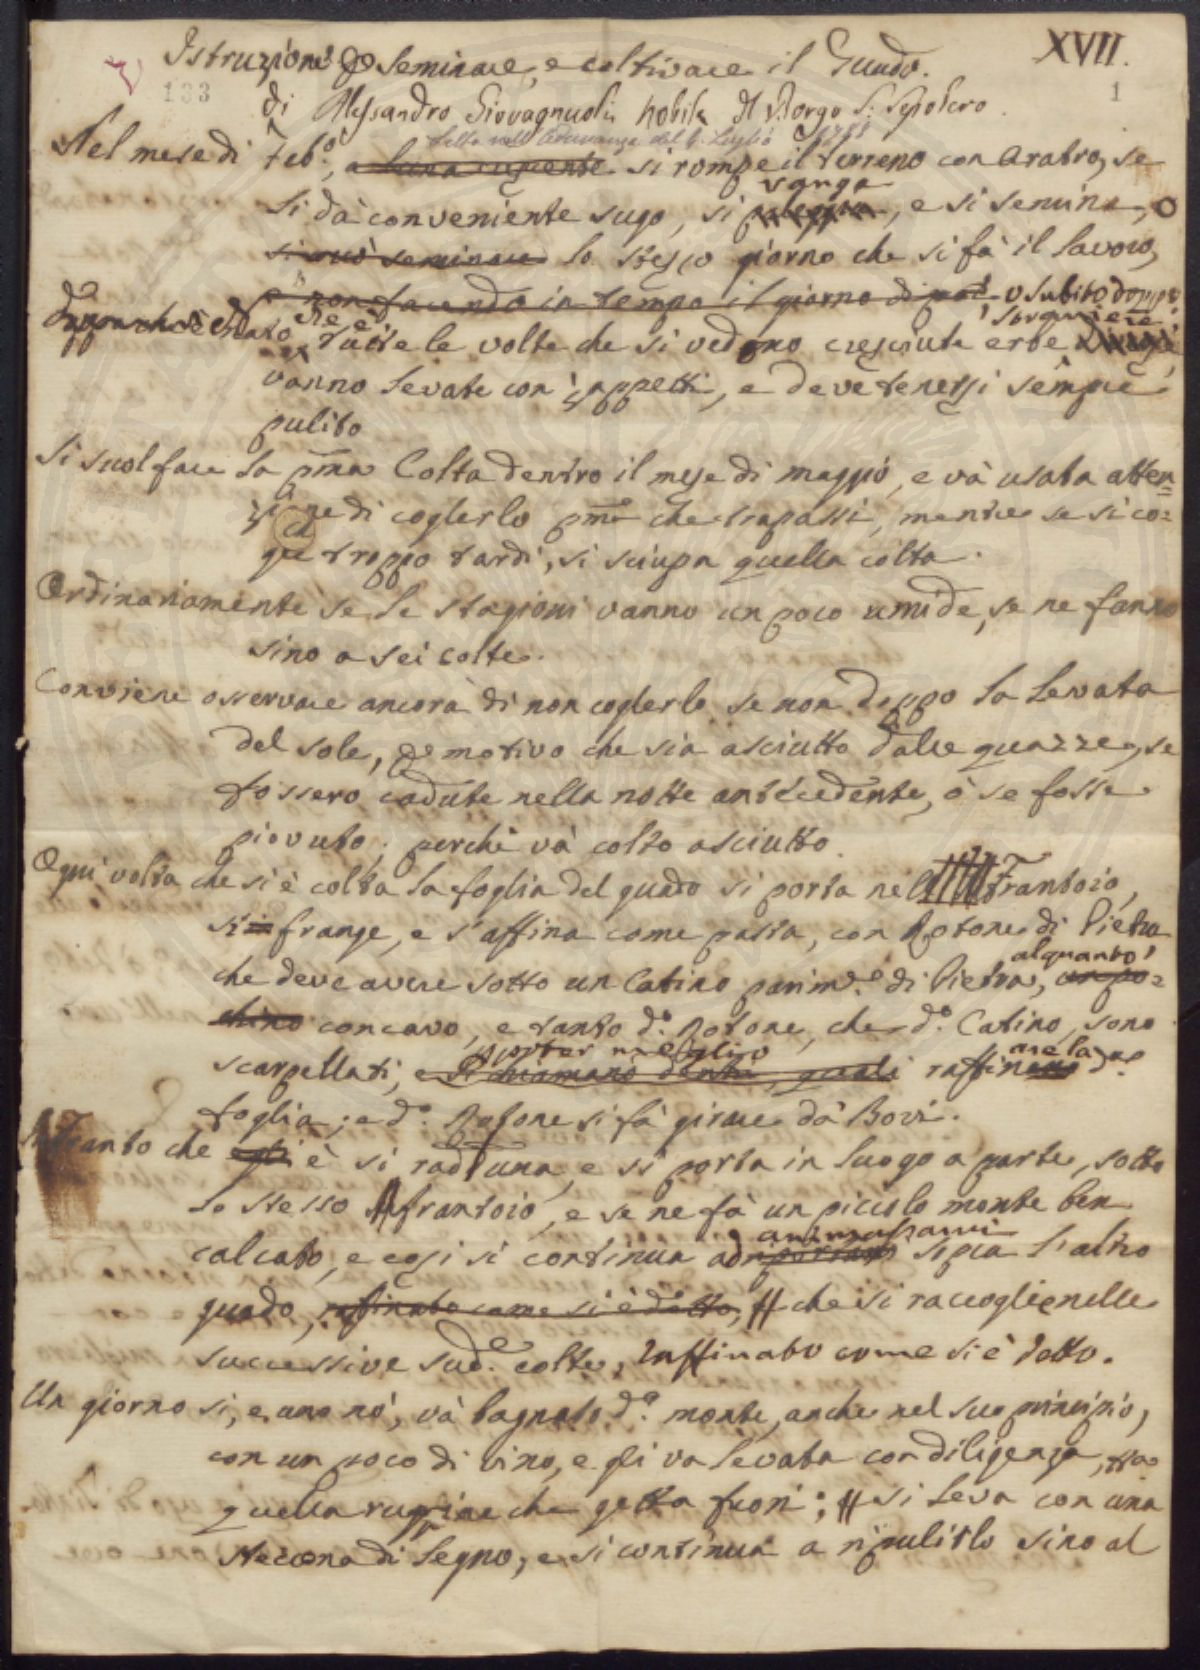 XVII.
Istruzione p seminare, e coltivare il Guado.
133
1
di Alessandro Giovagnuoli Nobile di Borgo S: Sepolcro
letta nell'Adunanza del Luglio
Nel mese di Feb.o, a luna crescente si rompe il terreno con Aratro, se
vanga
li dà conveniente sugo, si, e si semina, o
si può seminare lo stesso giorno che si fà il lavoro,
e non facendo in tempo il giorno di poi o subito doppo
sorgniere
Tutte le volte che si vedono cresciute erbe
vanno levate con zappetti, e deve tenersi sempre
pulito
Si suol fare la pma Colta dentro il mese di Maggio, e và usata atten=
zione di coglierlo pma che trapassi, mentre se si co=
glie troppo tardi, si sciupa quella colta.
Ordinariamente se le stagioni vanno un poco umide, se ne fanno
sino a sei colte.
Conviene osservare ancora di non coglierlo se non doppo la levata
del sole, p motivo che sia asciutto dalle guazze, se
fossero cadute nella notte antecedente, ò se fosse
piovuto; perchè và colto asciutto.
Ogni volta che si è colta la foglia del guado si porta nel Frantoio,
si in frange, e s'affina come pasta, con Rotone di Pietra
alquanto
che deve avere sotto un Catino parim.e di Pietra, un po=
chino concavo, e tanto d.o Rotone, che d.o Catino, sono
p poter meglio are la
scarpellati, e si chiamano denti, quali raffinano d.a
foglia; e d.o Rotone si fà girare dà Bovi.
Infranto che egli è si raduna, e si porta in luogo a parte, sotto
lo stesso frantoio, e se ne fà un piccolo monte ben
ammassarvi
calcato, e così si continua ad riportar sopra l'altro
guado, raffinato come si è detto, # che si raccoglie nelle
successive sud.e colte, raffinato come si è detto.
Un giorno si, e uno nò, và bagnato d.o monte, anche nel suo principio,
con un poco di vino, e gli va levata con diligenza,
quella ruggine che getta fuori; # si leva con una
stecca di legno, e si continua a ripulirlo sino al